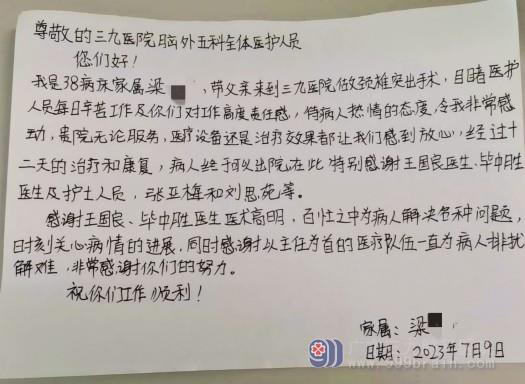 尊敬的三九医院脑外五科全体医护人员
您们好!
我是38病床家属梁 , 带父亲来到三九医院做颈椎突出手术, 目睹医护
人员每日辛苦工作及你们对工作高度责任感, 待病人热情的态度, 令我非常感
动, 贵院无论服务, 医疗设备还是治疗效果都让我们感到放心, 经过十
二天的治疗和康复, 病人终于可以出院, 在此特别感谢王国良医生、毕中胜
医生及护士人员, 张亚梅和刘思苑等。
感谢王国良、毕中胜医生医术高明, 百忙之中为病人解决各种问题,
时刻关心病情的进展, 同时感谢以主任为首的医疗队伍一直为病人排忧
解难, 非常感谢你们的努力。
祝你们工作顺利!
家属: 梁
日期: 2023年7月9日
www.999brain.com